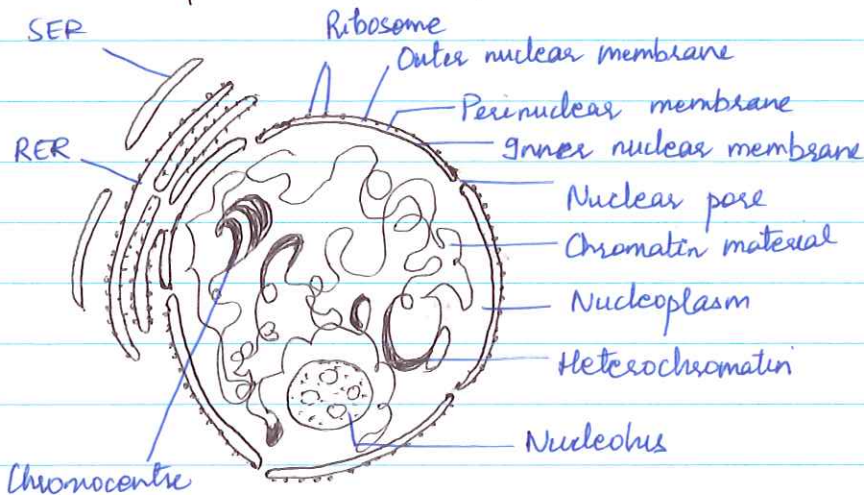 SER
Ribosome
Outer nuclear membrane
Perinuclear membrane
RER
Inner nuclear membrane
Nuclear pore
Chromatin material
Nucleoplasm
Heterochromatin
Nucleolus
Chromocentre